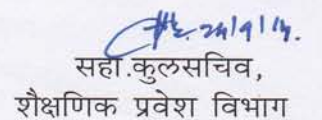 24/9/14.
सहा.कुलसचिव,
शैक्षणिक प्रवेश विभाग